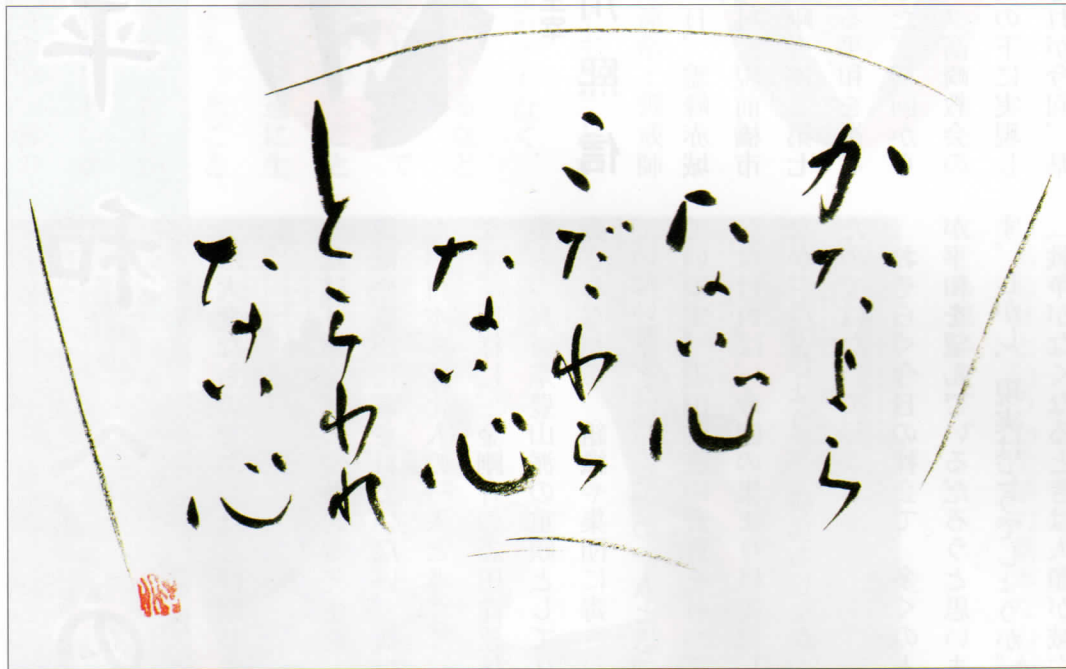 かたよら
ない心
こだわら
ない心
とらわれ
ない心